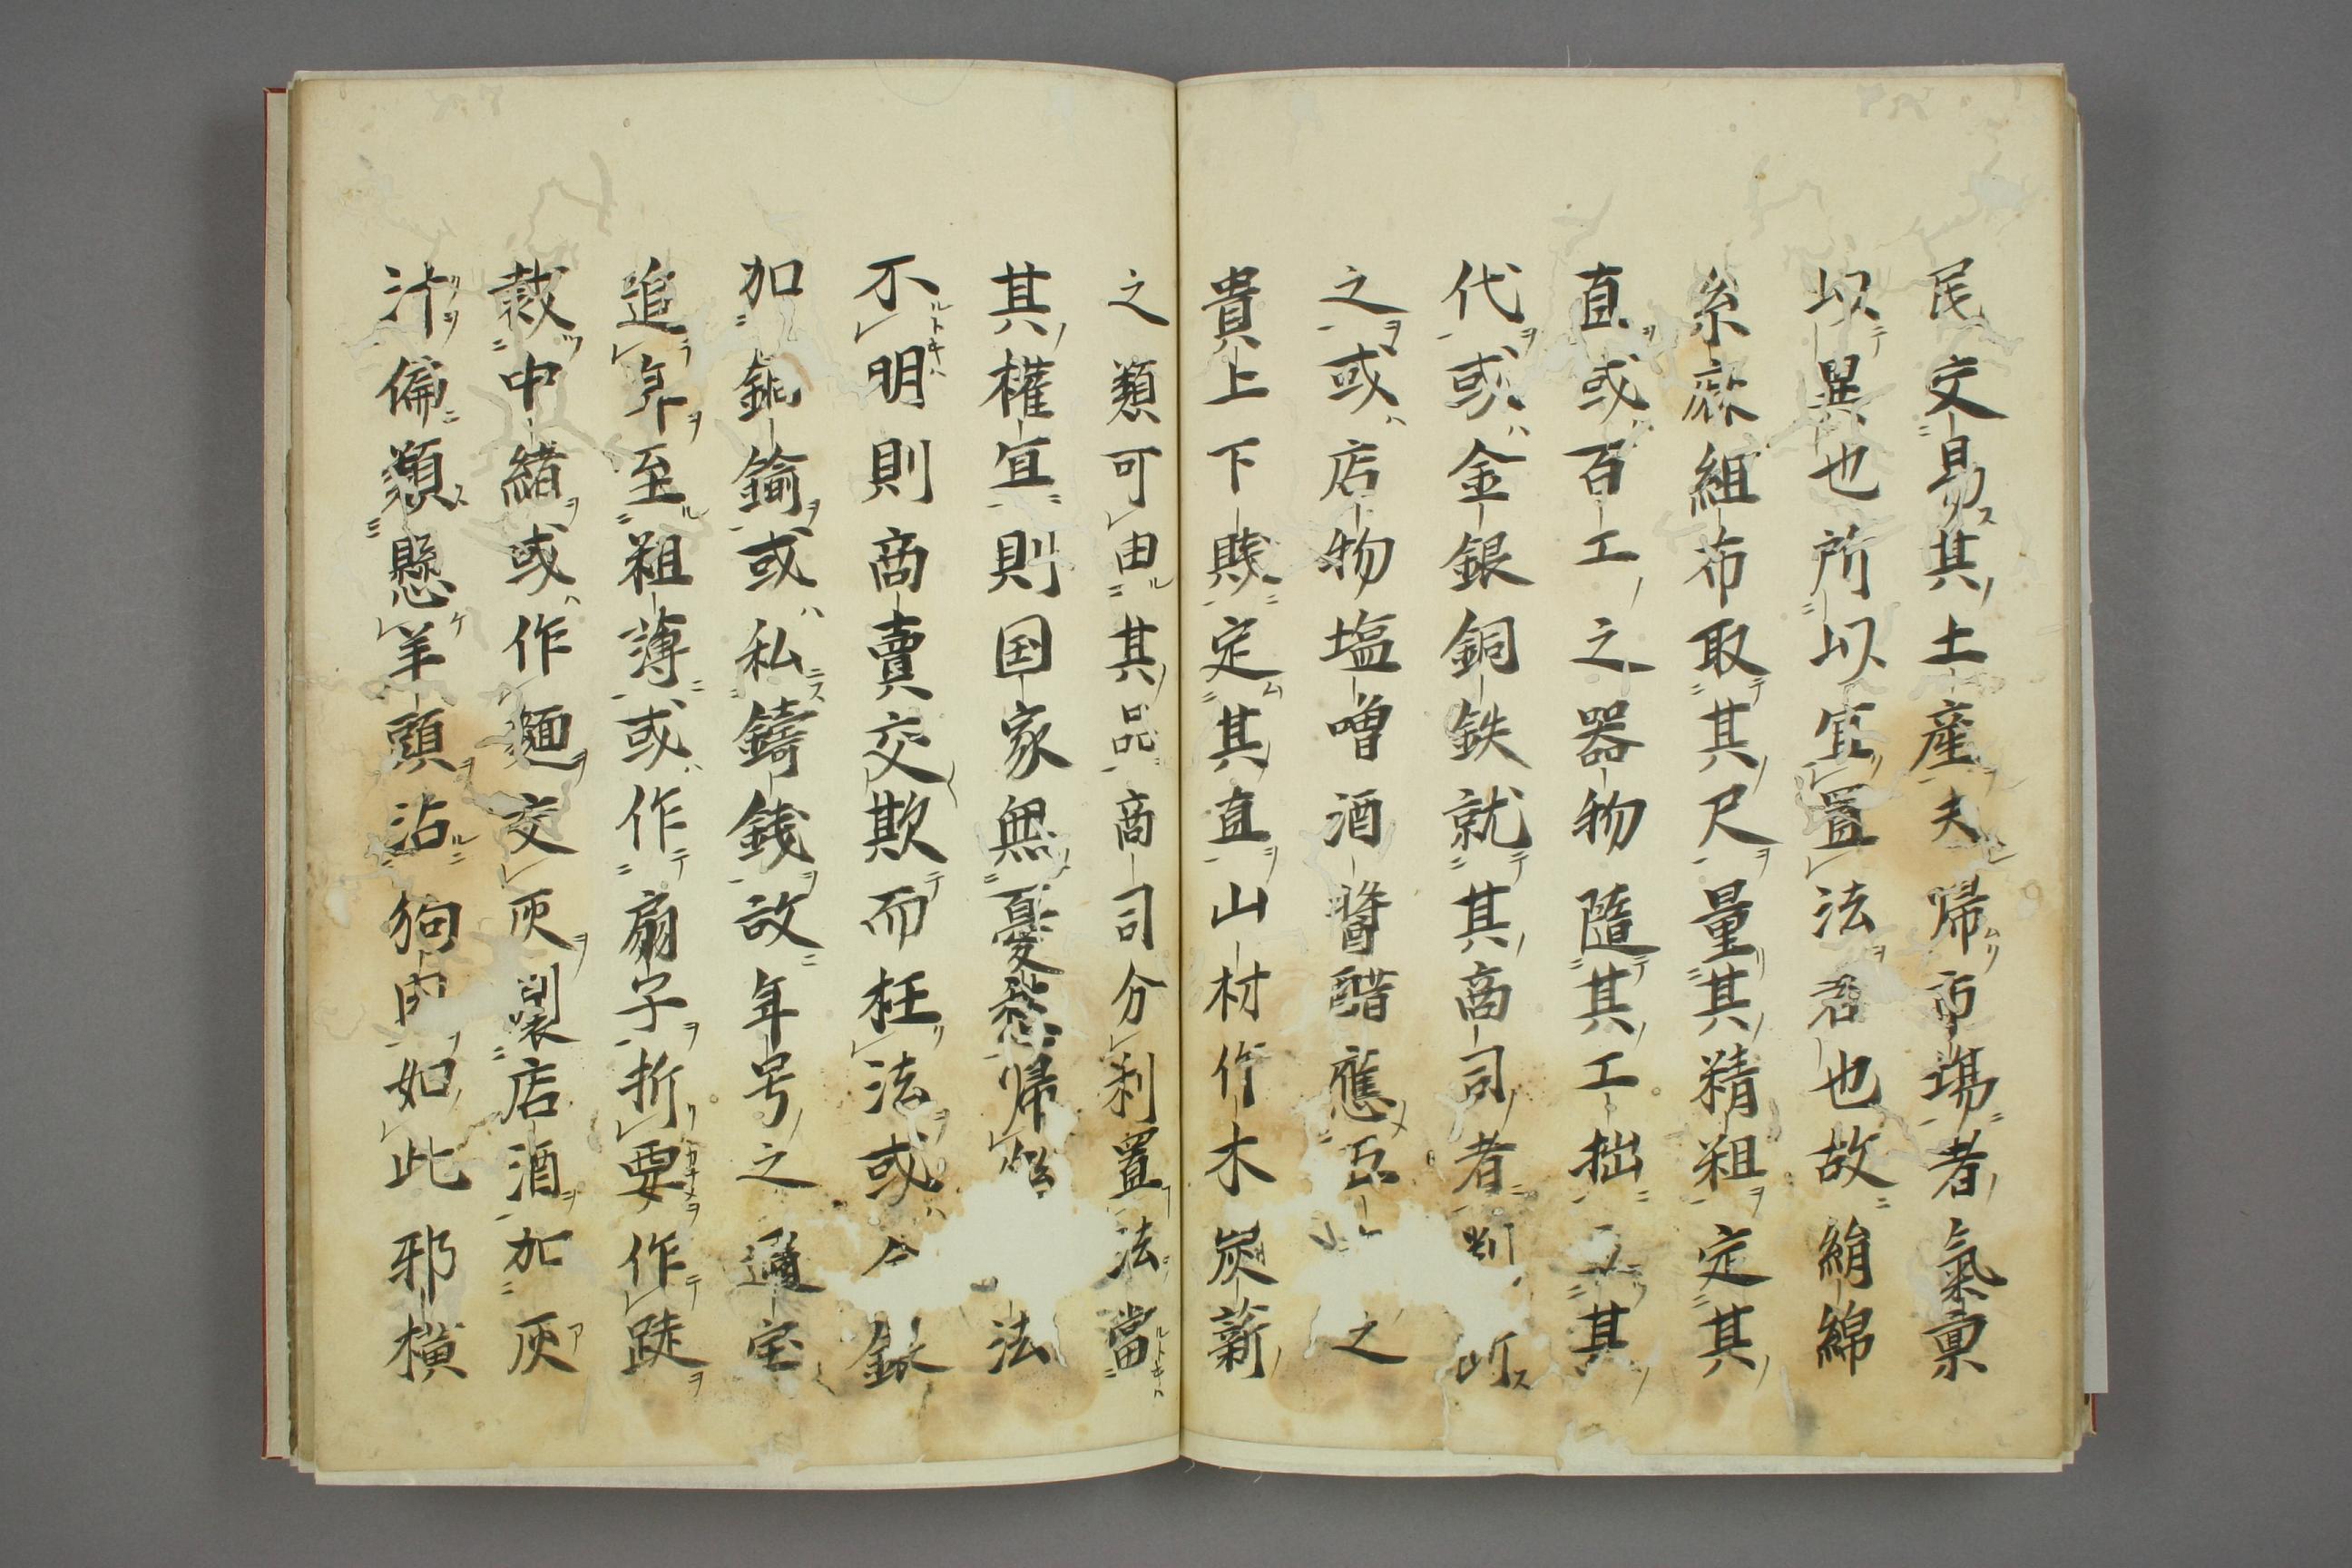 民交易其土産夫帰市場者氣稟
以異也所以宜置法君也故絹綿
糸麻組布取其尺量其精粗定其
直或百工之器物隨其工拙定其
代或金銀銅鉄就其商司者
之或店物塩噌酒醬醋應 之
貴上下賎定其直山材作木炭薪
之類可由其品商司分利置法當
其權宜則国家無憂愁帰 法
不明則商賣交欺而枉法或 銀
加鉛鍮或私鑄錢故年号之通宝
追年至粗薄或作扇子折要作
裁中緒或作麺交灰製店酒加灰
汁偏類懸羊頭沽狗肉如此邪横